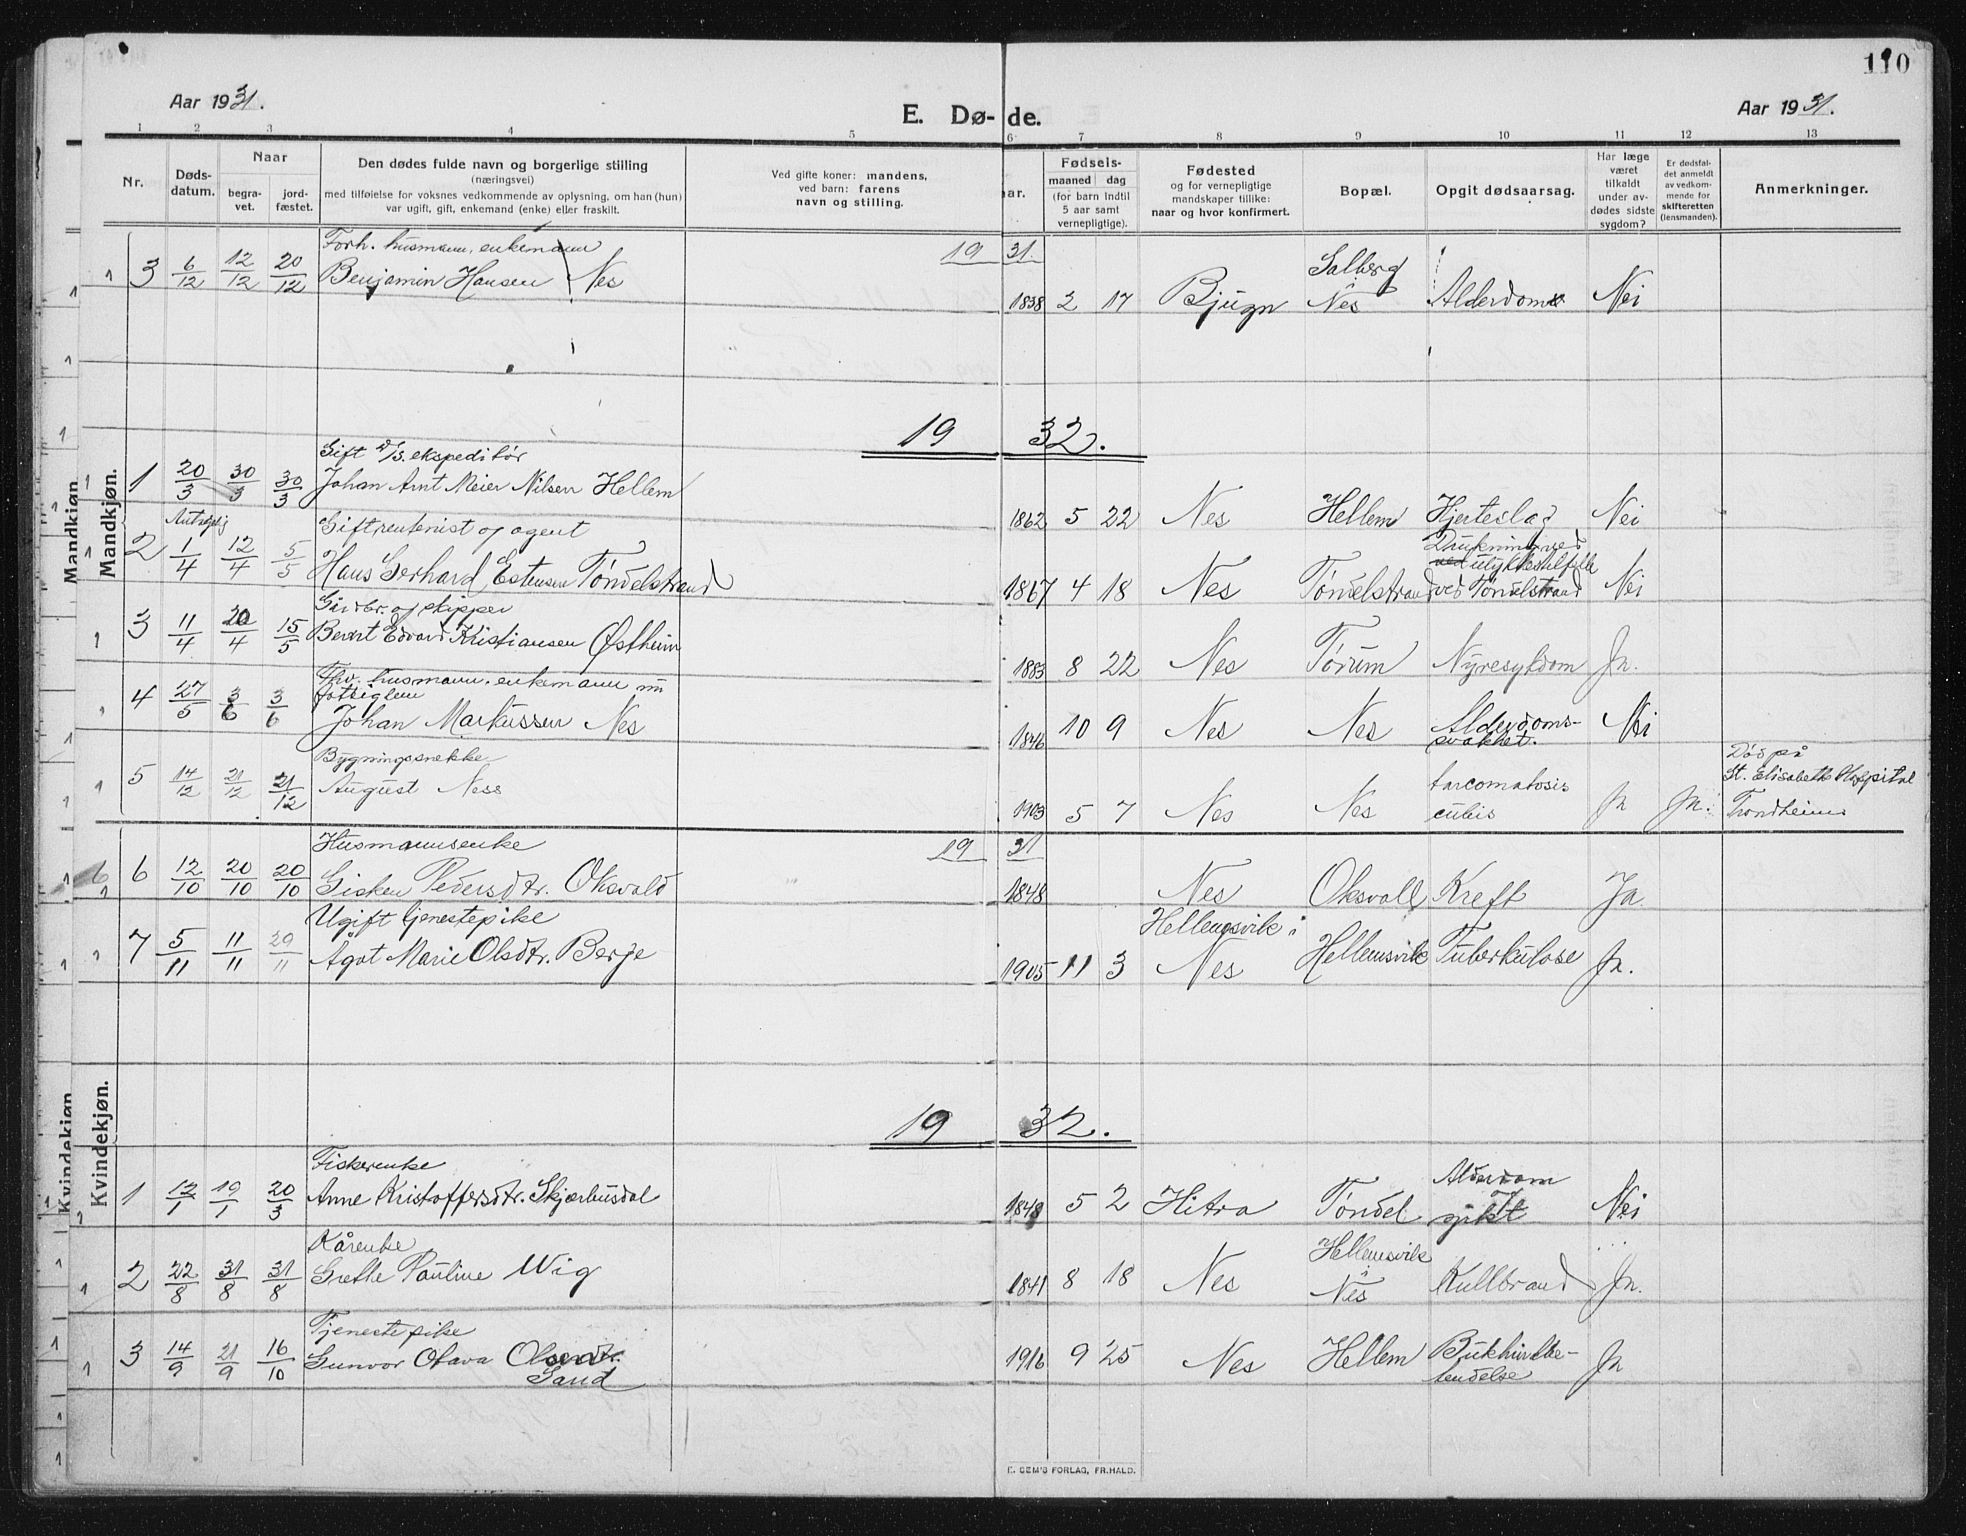 110
Aar 1931.
E. Dø-
de.
Aar 1931.
1 2 3 4 5 6 7 8 9 10 11 12 13
Nr.
Døds-
datum.
Naar
begra-
vet.
jord-
fæstet.
Den dødes fulde navn og borgerlige stilling
(næringsvei)
med tilføielse for voksnes vedkommende av oplysning, om han (hun)
var ugift, gift, enkemand (enke) eller fraskilt.
Ved gifte koner: mandens,
ved barn: farens
navn og stilling.
ar.
Fødsels-
maaned dag
(for barn indtil
5 aar samt
vernepligtige).
Fødested
og for vernepligtige
mandskaper tillike:
naar og hvor konfirmert.
Bopæl.
Opgit dødsaarsag.
Har læge
været
tilkaldt
under av-
dødes sidste
sygdom?
Er dødsfal-
det anmeldt
av vedkom-
mende for
skifteretten
(lensmanden).
Anmerkninger.
Mandkjøn.
19 31.
Forh. husmann, enkemann
1 3 6/12 12/12 20/12 Benjamin Hansen Nes 1838 2 17 Bjugn Salberg Nes Alderdom Nei
19 32.
Gift D/S. ekspeditør
1 1 20/3 30/3 30/3 Johan Arnt Meier Nilsen Hellem 1862 5 22 Nes Hellem Hjerteslag Nei
Antagelig Gift rentenist og agent
1 2 1/4 12/4 5/5 Hans Gerhard Estensen Tøndelstrand 1867 4 18 Nes Tøndelstrand Drukning ved
ved ulykkestilfelle
ved Tøndelstrand Nei
Gårdbr. og skipper
1 3 11/4 20/4 15/5 Bernt Edvard Kristiansen Østheim 1883 8 22 Nes Tørum Nyresykdom Ja.
Fhv. husmann, enkemann nu
fattiglem
1 4 27/5 3/6 3/6 Johan Markussen Nes 1846 10 9 Nes Nes Alderdoms-
svakhet. Nei
Bygningssnekker
1 5 14/12 21/12 21/12 August Ness 1903 5 7 Nes Nes Sarcomatosis
cubis Ja Ja. Død på
St. Elisabeths Hospital
Trondheim
Kvindekjøn.
19 31
Husmannsenke
6 6 12/10 20/10 20/10 Gisken Pedersdtr. Oksvold 1848 Nes Oksvoll Kreft Ja
Ugift tjenestepike
1 7 5/11 11/11 29/11 Agot Marie Olsdtr. Berge 1905 11 3 Hellemsvik i
Nes Hellemsvik Tuberkulose Ja.
19 32.
Fiskerenke
1 1 12/1 19/1 20/3 Anne Kristoffersdtr. Skjærbusdal 1848 5 2 Hitra Tøndel Alderdom
gikt Nei
Kårenke
1 2 22/8 31/8 31/8 Grethe Pauline Wig 1841 8 18 Nes Hellemsvik
i
Nes Kullbrand Ja.
Tjenestepike
1 3 14/9 21/9 16/10 Gunvor Otava Olsendtr.
Sand 1916 9 25 Nes Hellem Bukhinnebe-
tendelse Ja
E. SEM'S FORLAG, FR.HALD.